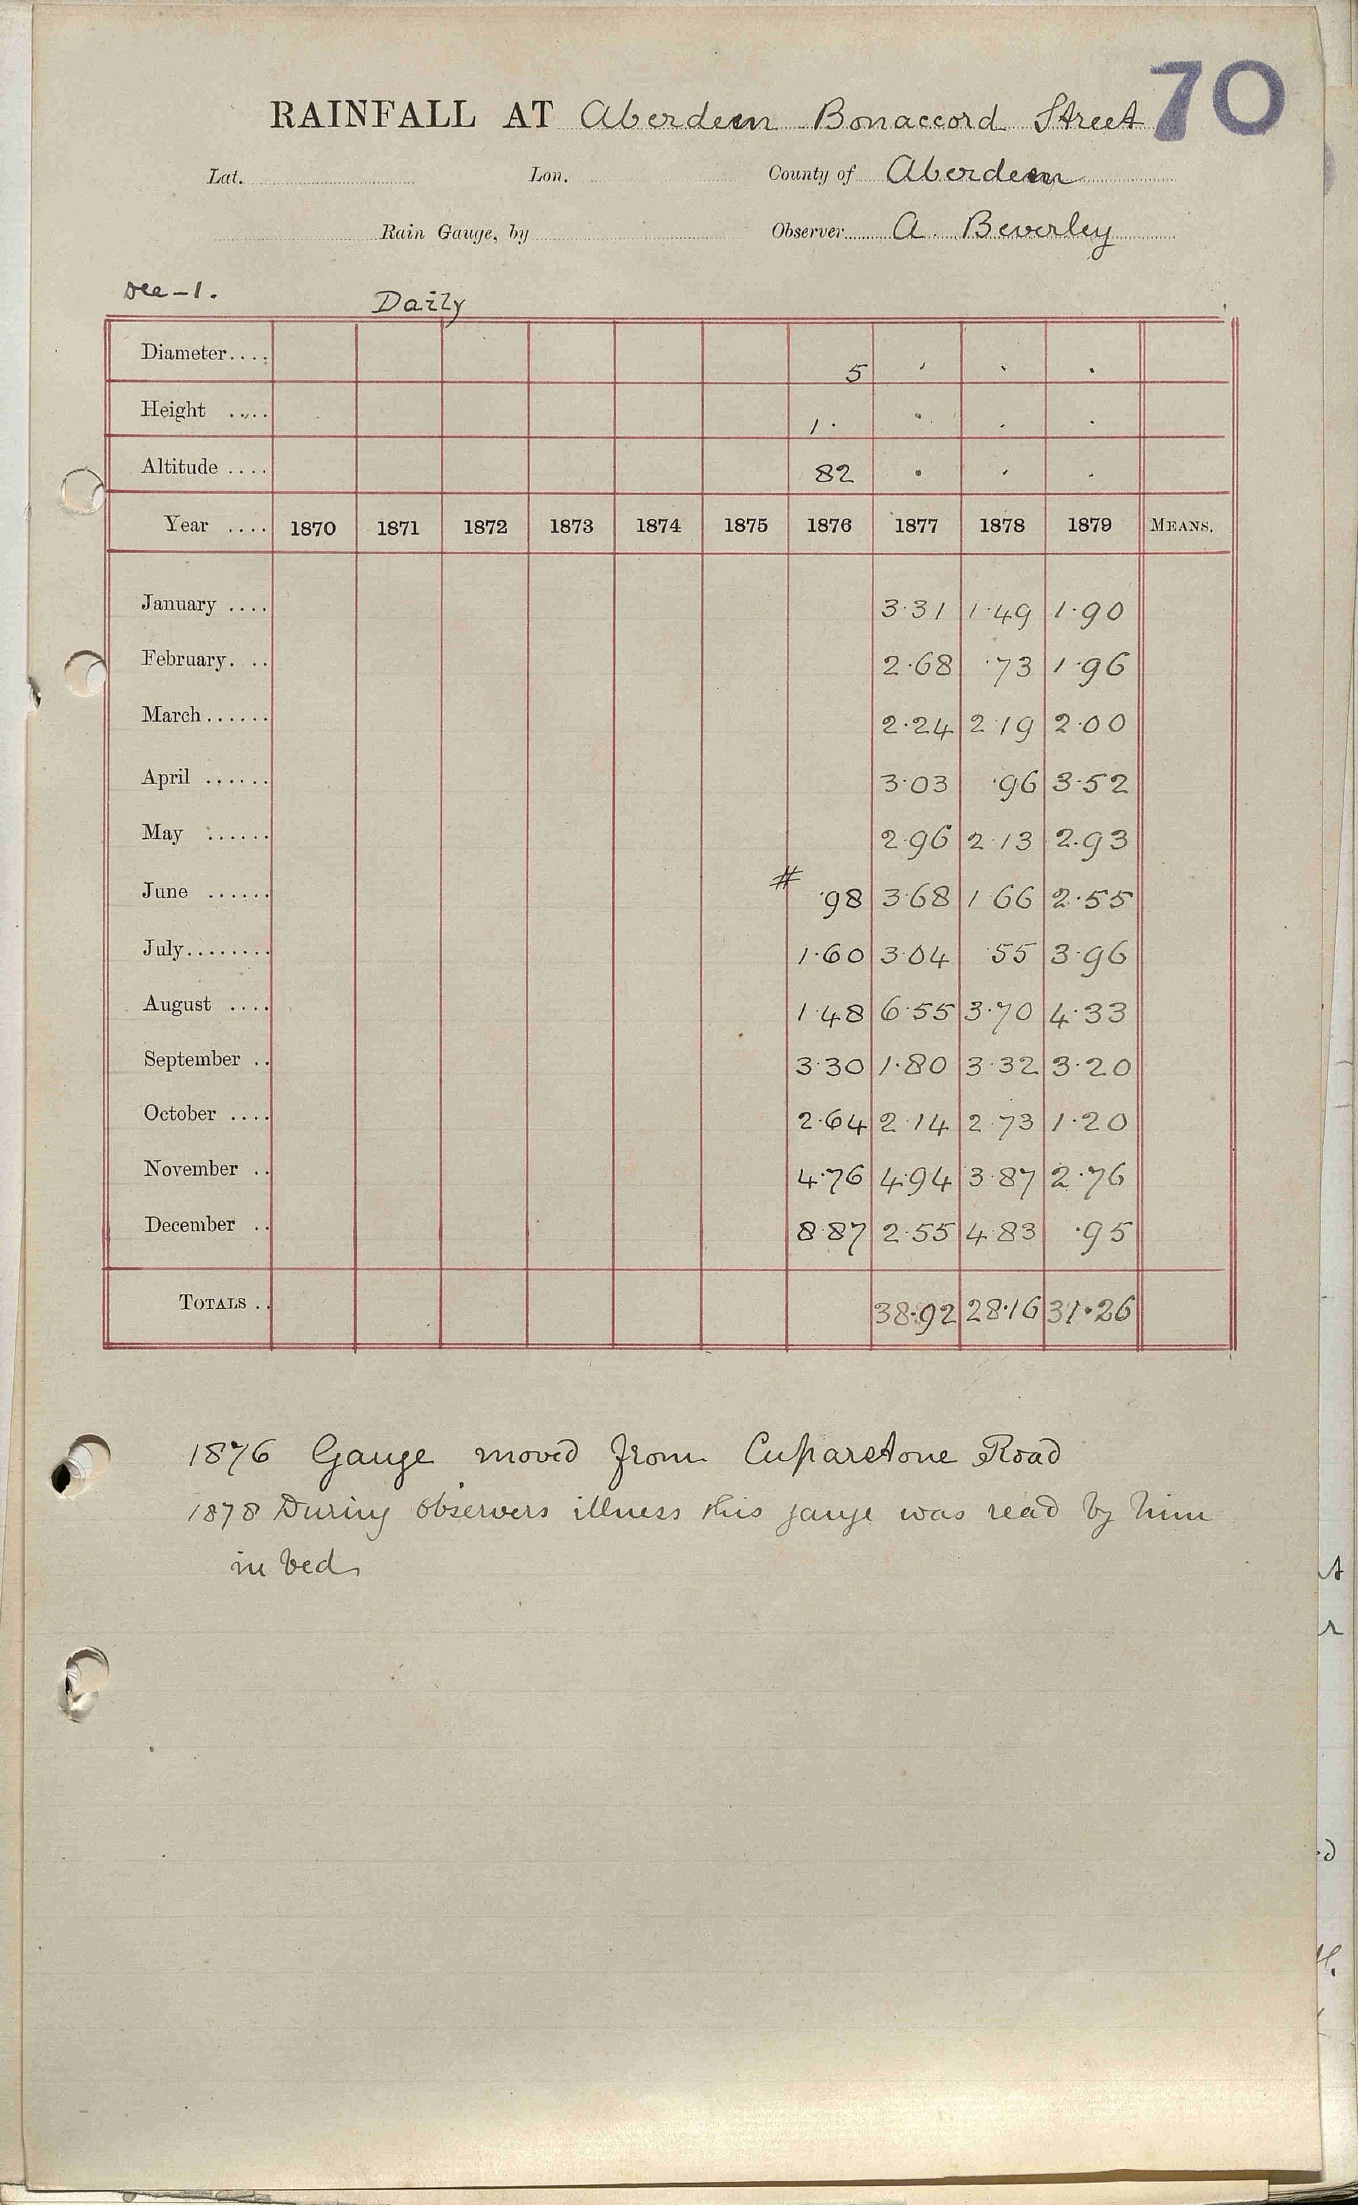 70
RAINFALL AT Aberdeen Bonaccord Street
Lat. Lon. County of Aberdeen
Rain Gauge, by Observer A. Beverley
Dee-1. Daily
Diameter.... 5 ' . .
Height .... 1. . . .
Altitude .... 82 . . .
Year .... 1870 1871 1872 1873 1874 1875 1876 1877 1878 1879 MEANS.
January .... 3.31 1.49 1.90
February. .. 2.68 .73 1.96
March...... 2.24 2.19 2.00
April ...... 3.03 .96 3.52
May ...... 2.96 2.13 2.93
June ...... # .98 3.68 1.66 2.55
July........ 1.60 3.04 .55 3.96
August .... 1.48 6.55 3.70 4.33
September .. 3.30 1.80 3.32 3.20
October .... 2.64 2.14 2.73 1.20
November .. 4.76 4.94 3.87 2.76
December .. 8.87 2.55 4.83 .95
TOTALS .. 38.92 28.16 31.26
1876 Gauge moved from Cuparstone Road
1878 During observers illness this gauge was read by him
in bed